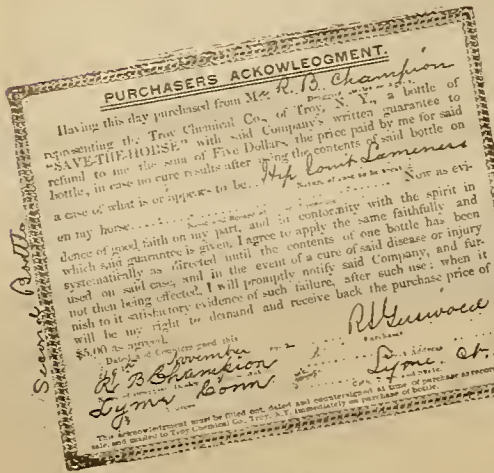 PURCHASERS ACKNOWLEDGMENT.
Having this day purchased from Mr R. B. Champion
representing the Troy Chemical Co., of Troy, N. Y., a bottle of
"SAVE-THE-HORSE" with said Company's written guarantee to
refund to me the sum of Five Dollars, the price paid by me for said
bottle, in case no cure results after using the contents of said bottle on
a case of what is or appears to be Hip Joint Lameness
on my horse Now as evi-
dence of good faith on my part, and in conformity with the spirit in
which said guarantee is given, I agree to apply the same faithfully and
systematically as directed until the contents of one bottle has been
used on said case, and in the event of a cure of said disease or injury
not then being effected, I will promptly notify said Company, and fur-
nish to it satisfactory evidence of such failure, after such use; when it
will be my right to demand and receive back the purchase price of
$5.00 as agreed.
Dated and countersigned this
November
R B Champion
Lyme Conn
Lyme Ct.
This acknowledgment must be filled out, dated and countersigned at time of purchase as record of
sale, and mailed to Troy Chemical Co., Troy, N.Y. immediately on purchase of bottle.
Second Bottle